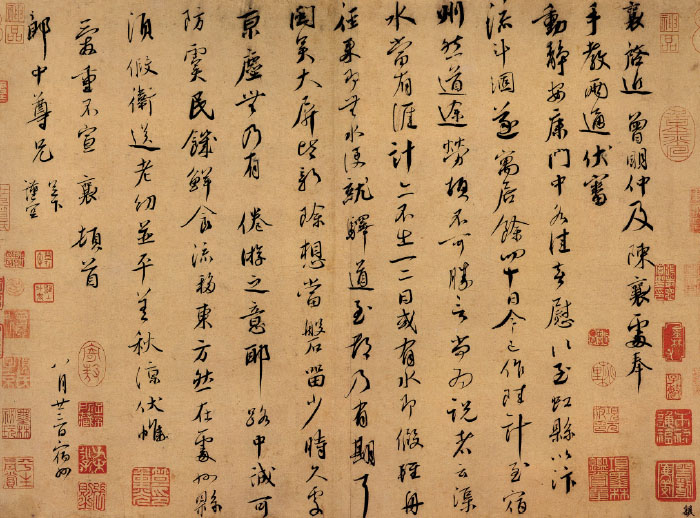 襄啓近曾明仲及陳襄處奉
手教兩通伏審
動靜安康門中各佳喜慰〻至虹縣以汴
流斗涸遂寓居餘四十日今已作陸計至宿
州然道途勞頓不可勝言尚為說者云渠
水當有涯計亦不出一二日或有水即假輕舟
徑來即無水便就驛道至都乃有期耳
聞吳大屏皆新除想當磐留少時久處
京塵無乃有倦游之意耶路中誠可
防虞民饑鮮食流移東方然在處州縣
須假衛送老幼並平善秋涼伏惟
愛重不宣襄頓首
郎中尊兄足下
謹空
八月廿日宿州